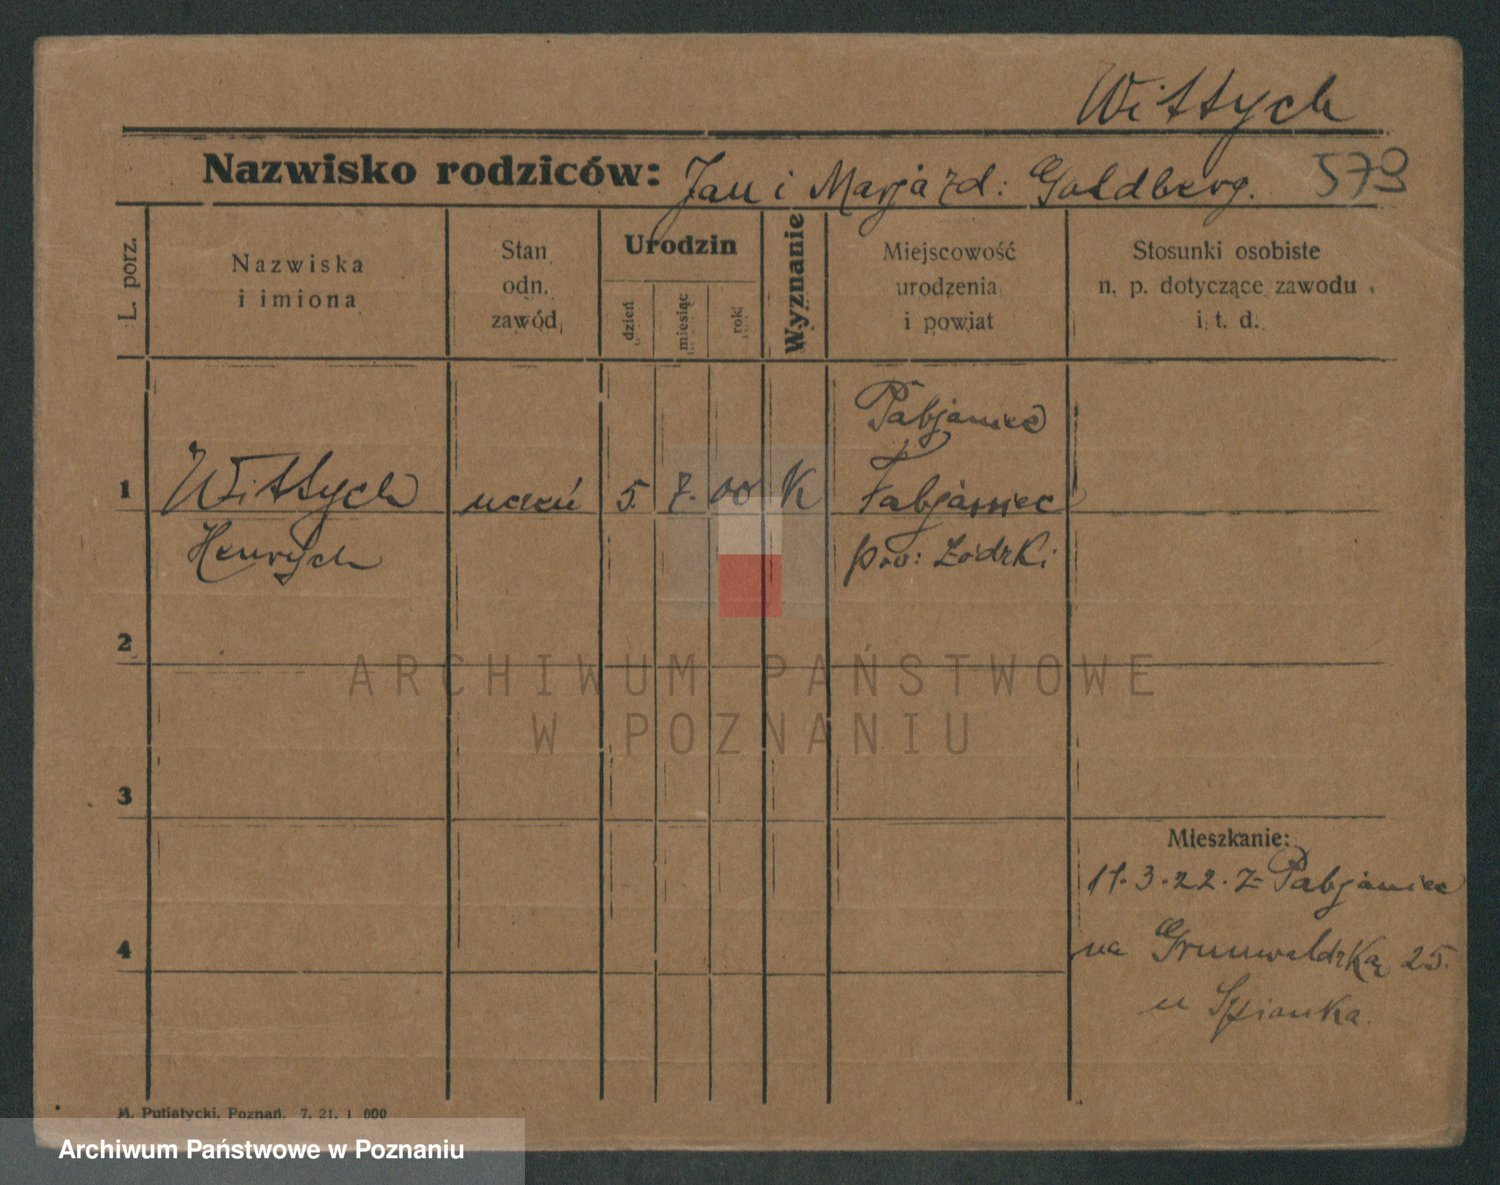 Wittych
Nazwisko rodziców: Jan i Marja zd: Goldberg. 579
L. porz.
Nazwiska
i imiona
Stan
odn.
zawód
Urodzin
dzień
miesiąc
rok
Wyznanie
Miejscowość
urodzenia
i powiat
Stosunki osobiste
n. p. dotyczące zawodu
i t. d.
1
Wittych
Henrych
uczeń
5.
7.
00
K
Pabjanice
Pabjanice
pow: Łódzki
2
3
4
Mieszkanie:
11.3.22. z Pabjanice
na Grunwaldzką 25.
u
M. Putiatycki, Poznań. 7. 21. 1 000
ARCHIWUM PAŃSTWOWE
W POZNANIU
Archiwum Państwowe w Poznaniu